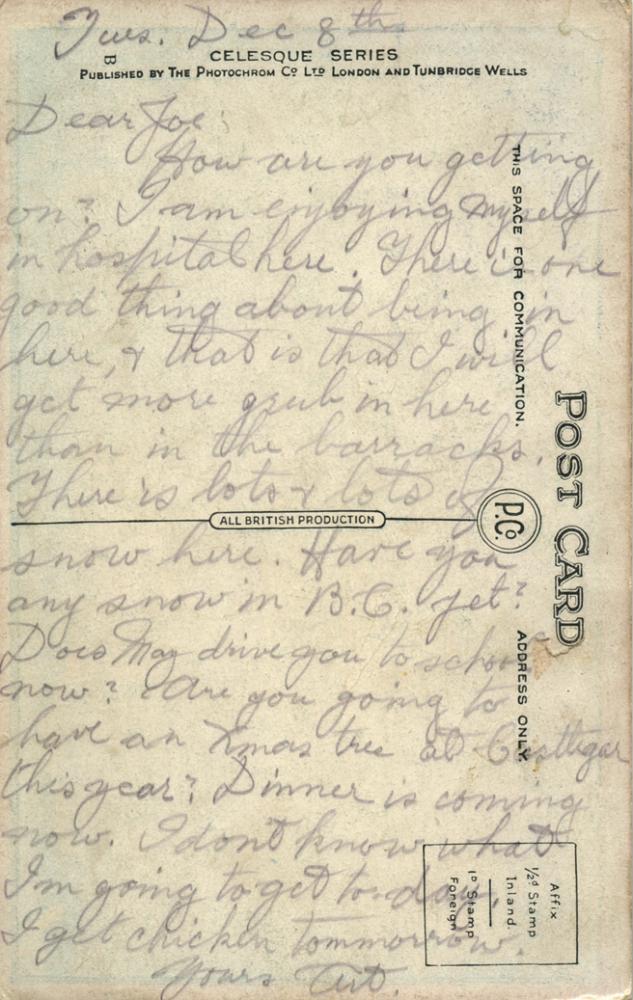 Tues. Dec 8th
B
CELESQUE SERIES
PUBLISHED BY THE PHOTOCHROM Co LTD LONDON AND TUNBRIDGE WELLS
Dear Joe:
How are you getting
on? I am enjoying myself
in hospital here. There is one
good thing about being in
here, & that is that I will
get more grub in here
than in the barracks.
There is lots & lots of
snow here. Have you
any snow in B.C. yet?
Does May drive you to school
now? Are you going to
have an Xmas tree at Castlegar
this year? Dinner is coming
now. I dont know what
Im going to get to-day.
I get chicken tommorrow.
Yours Art.
THIS SPACE FOR COMMUNICATION.
ADDRESS ONLY.
POST CARD
P.Co
ALL BRITISH PRODUCTION
Affix
1/2d Stamp
Inland.
1D Stamp
Foreign